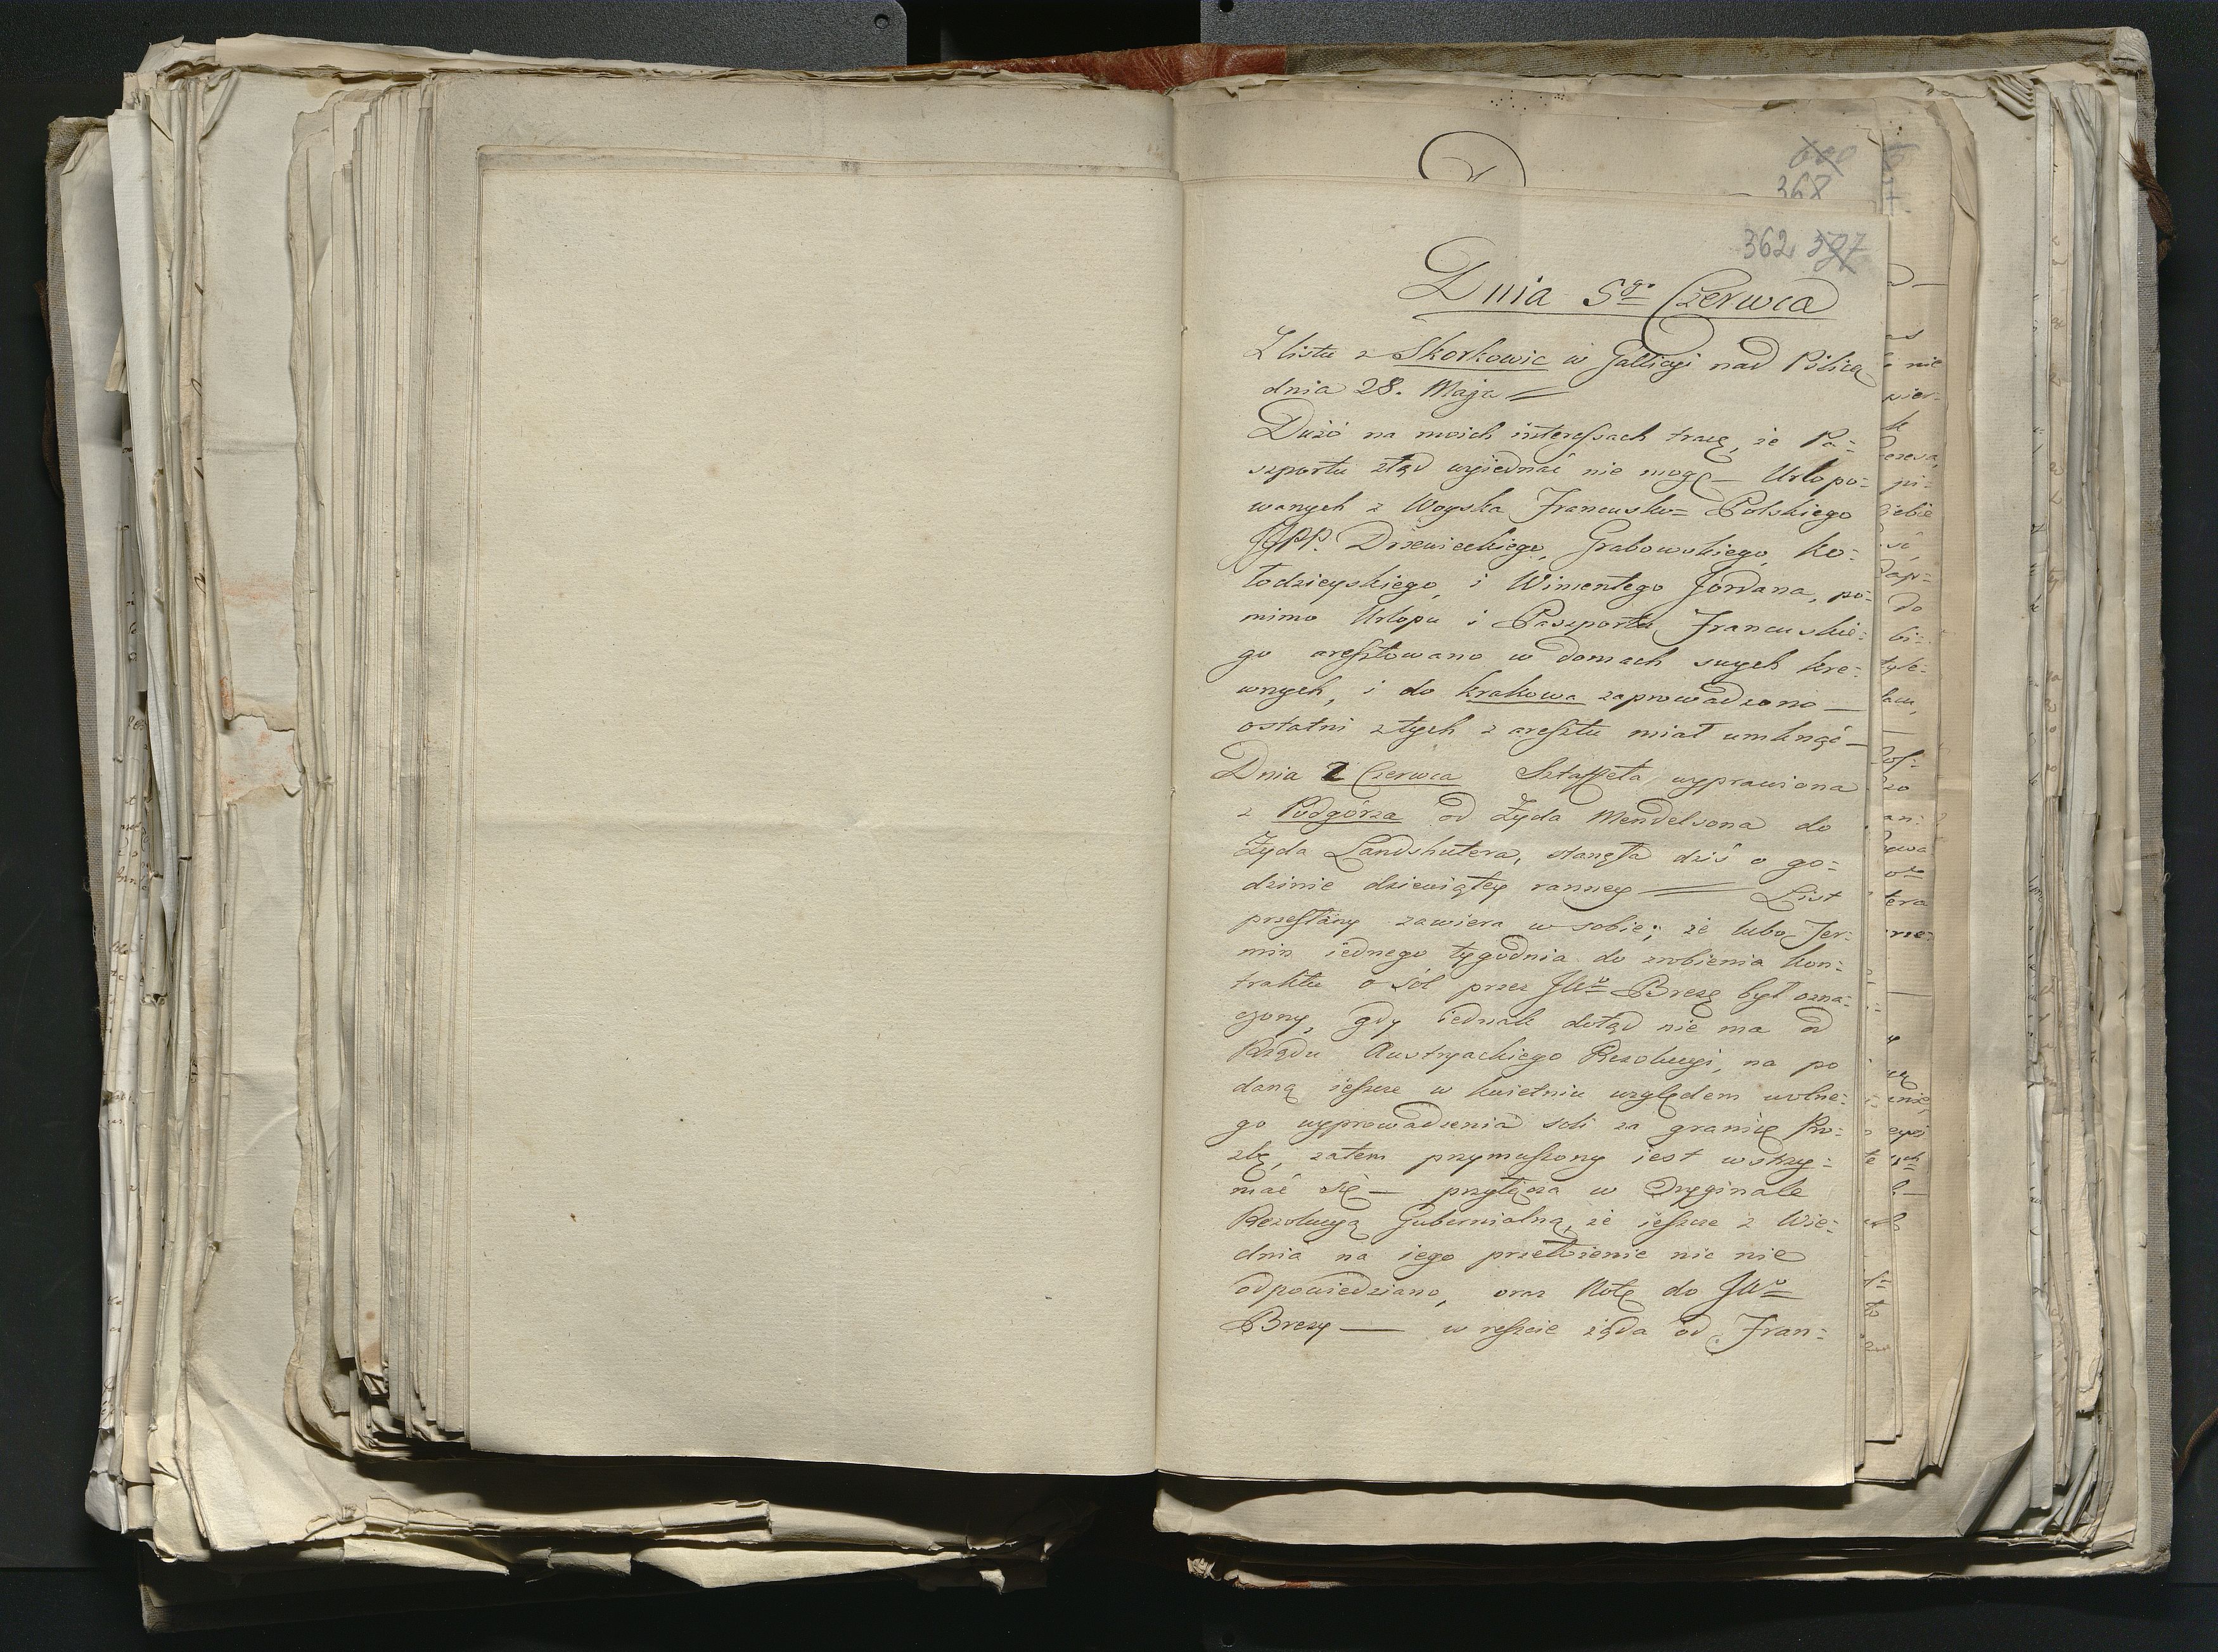 600
368
362 397
Dnia 5go Czerwca
Z listu z Skorkowic w Gallicyi nad Pilicą
dnia 28. Maja
Dużo na moich interessach tracę, że Pa=
szportu ztąd wyiednać nie mogę — Urlopo=
wanych z Woyska Francusko= Polskiego
JJPP. Drzewieckiego, Grabowskiego, Ko=
łodzieyskiego, i Wincentego Jordana, po=
mimo Urlopu i Paszportu Francuskie=
go aresztowano w domach swych kre=
wnych, i do Krakowa zaprowadzono —
ostatni z tych z aresztu miał umknąć —
Dnia 7 Czerwca Sztaffeta wyprawiona
z Podgórza od Żyda Mendelsona do
Żyda Landshutera, stanęła dziś o go=
dzinie dziewiątey ranney — List
przesłany zawiera w sobie; że lubo Ter=
min iednego tygodnia do zrobienia kon=
traktu o sól przez JWo Brezę był ozna=
czony, gdy iednak dotąd nie ma od
Rządu Austryackiego Rezolucyi, na po
daną ieszcze w kwietniu względem wolne=
go wyprowadzenia soli za granicę Pro=
zbę, zatem przymuszony iest wstrzy=
mać się — przyłącza w Oryginale
Rezolucyą Gubernialną, że ieszcze z Wie=
dnia na iego przełożenie nic nie
odpowiedziano, oraz Notę do JWo
Brezy — w reszcie żąda od Fran=